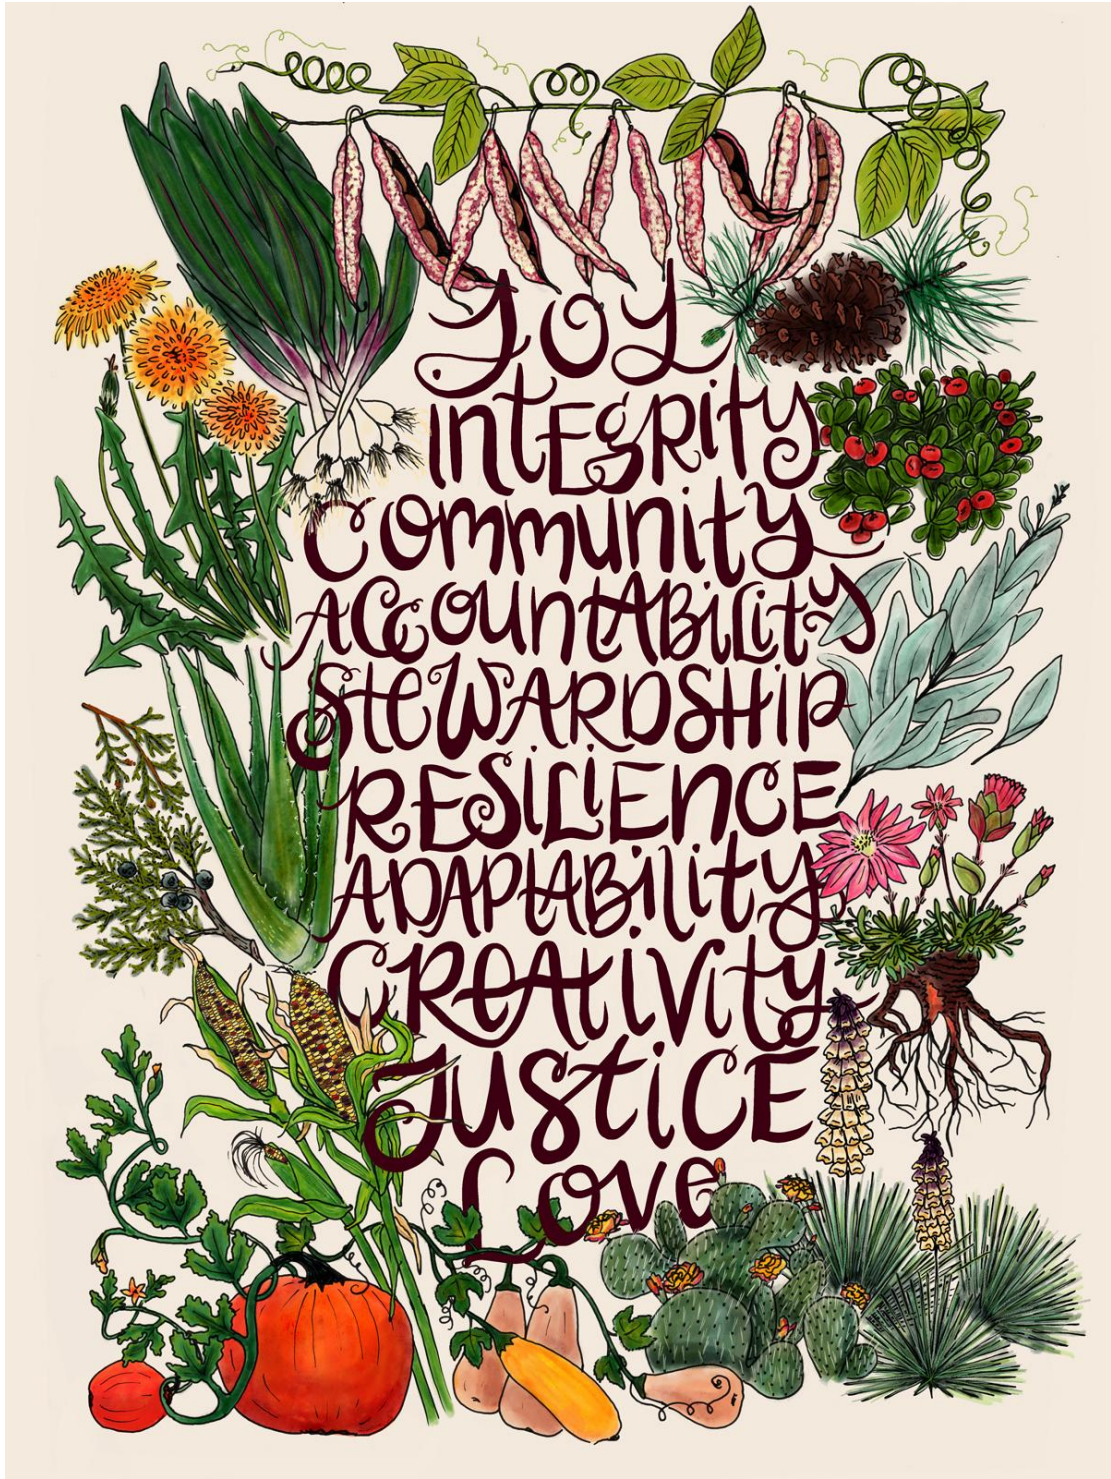 Joy
intEgRity
Community
ACCountABiLity
SteWARDSHiP
RESiLiEnCE
ADAPtABility
CReAtiVity
JUStiCE
Love